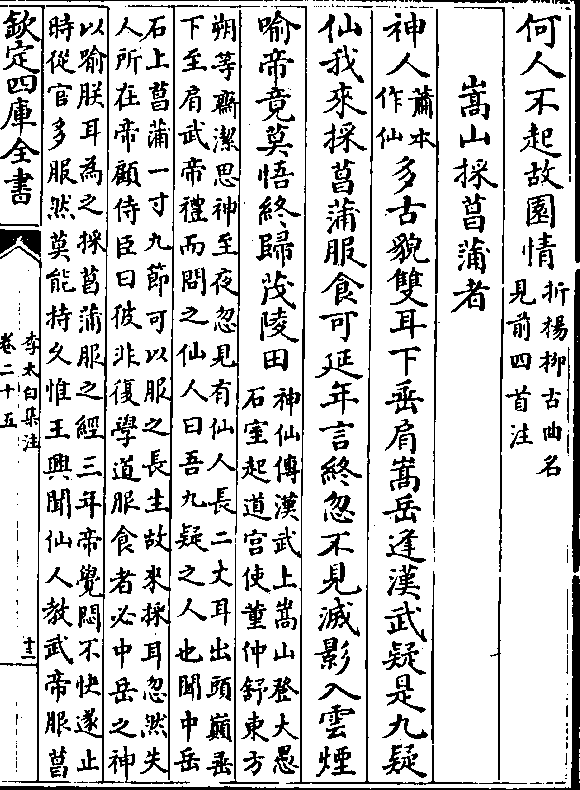 何人不起故園情折楊柳古曲名
見前四首注
嵩山採菖蒲者
神人蕭本
作仙多古貌雙耳下垂肩嵩岳逢漢武疑是九疑
仙我來採菖蒲服食可延年言終忽不見滅影入雲煙
喻帝竟莫悟終歸茂陵田神仙傳漢武上嵩山登大愚
石室起道宮使董仲舒東方
朔等齋潔思神至夜忽見有仙人長二丈耳出頭巔垂
下至肩武帝禮而問之仙人曰吾九疑之人也聞中岳
石上菖蒲一寸九節可以服之長生故來採耳忽然失
人所在帝顧侍臣曰彼非復學道服食者必中岳之神
以喻朕耳為之採菖蒲服之經三年帝覺悶不快遂止
時從官多服然莫能持久惟王興聞仙人教武帝服菖
欽定四庫全書
李太白集注
卷二十五
十三